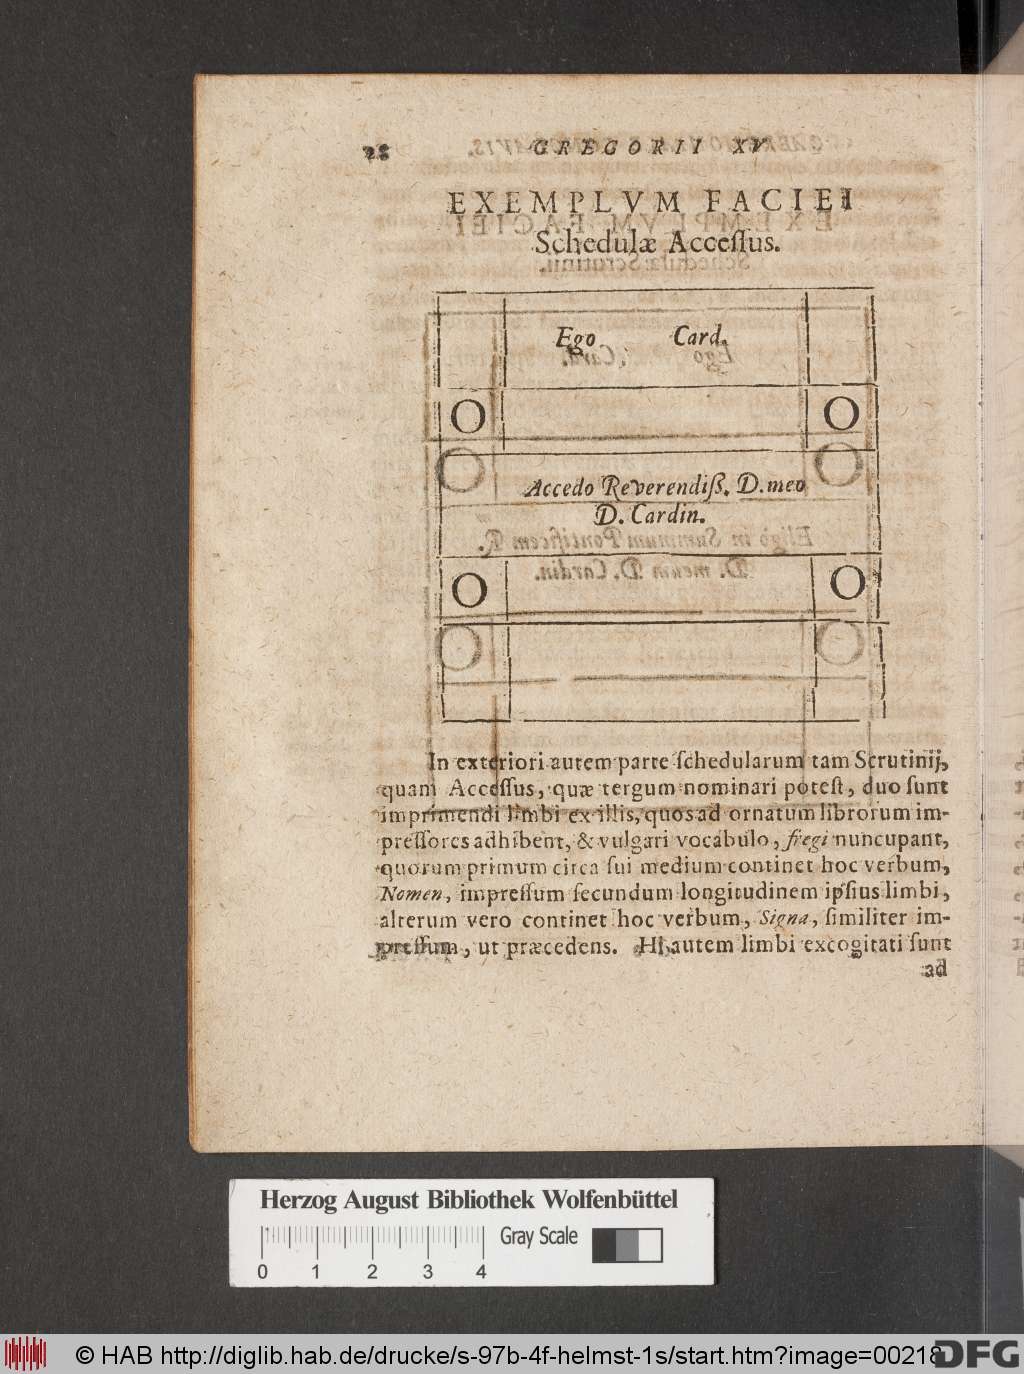 28 GREGORII XV
EXEMPLVM FACIEI
Schedulæ Acceſſus.
Ego Card.
O O
Accedo Reverendiß. D. meo
D. Cardin.
O O
In exteriori autem parte ſchedularum tam Scrutinij,
quam Acceſſus, quæ tergum nominari poteſt, duo ſunt
imprimendi limbi ex illis, quos ad ornatum librorum im-
preſſores adhibent, & vulgari vocabulo, fregi nuncupant,
quorum primum circa ſui medium continet hoc verbum,
Nomen, impreſſum ſecundum longitudinem ipſius limbi,
alterum vero continet hoc verbum, Signa, ſimiliter im-
preſſum, ut præcedens. Hi autem limbi excogitati ſunt
ad
Herzog August Bibliothek Wolfenbüttel
Gray Scale
0 1 2 3 4
© HAB http://diglib.hab.de/drucke/s-97b-4f-helmst-1s/start.htm?image=00218
DFG